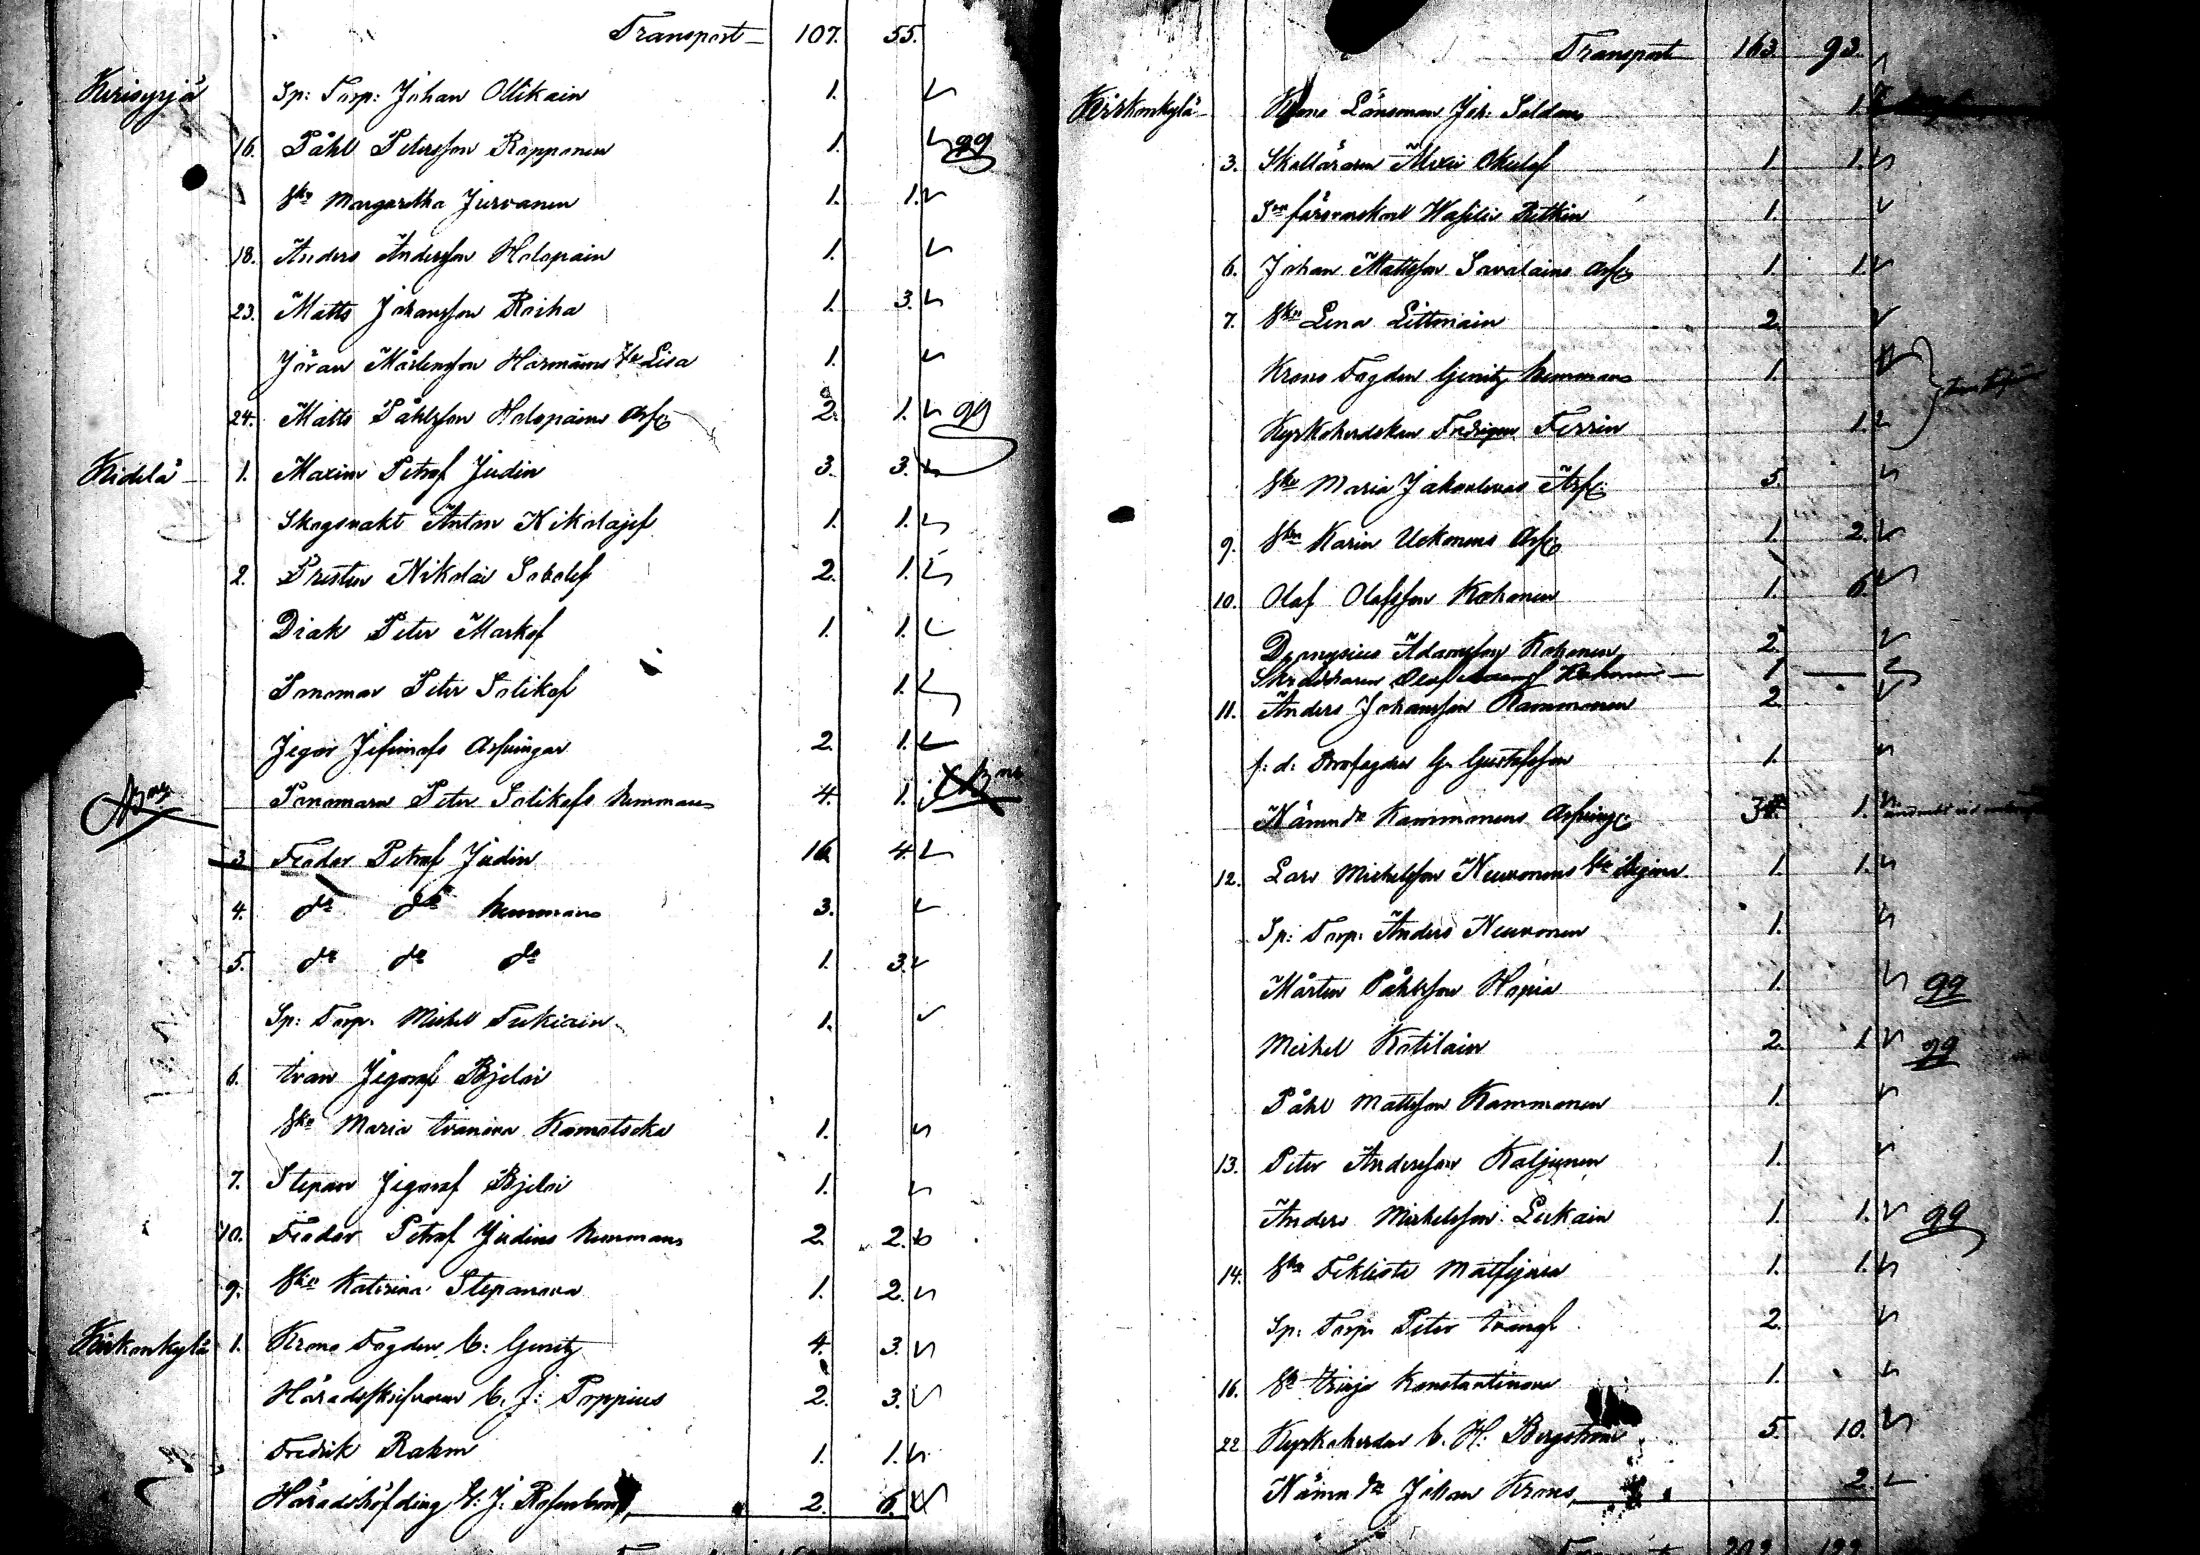 Transport 107. 55.
Kirisyrjä Sp: Torp: Johan Ollikain 1.
16. Påhl Petersson Ropponen 1. 99
Margaretha Jurvanen 1. 1.
18. Anders Andersson Holopain 1.
23. Matts Johansson Roiha 1. 3.
Jöran Mårtensson Lisa 1.
24. Matts Påhlsson Holopains Arfg 2. 1. 99
Kidelä 1. Maxim Petrof Judin 3. 3.
Skogsvakt Anton Nikolajef 1. 1.
2. Presten Nikolai Sobolef 2. 1.
Diak Peter Markof 1. 1.
Ponomar Peter Solikof 1.
Jegor Jefimofs Arfvingar 2. 1.
Ponomarn Peter Solikofs hemmans 4. 1.
3. Feodor Petrof Judin 16 4.
4. do do hemmans 3.
5. do do do 1. 3.
Sp: Torp. Michel Tukiain 1.
6. Ivan Jegorof Bjeloi
Maria Ivanova 1.
7. Stepan Jegorof Bjeloi 1.
10. Feodor Petrof Judins hemmans 2. 2.
9. Katerina Stepanova 1. 2.
Kirkonkylä 1. Krono Fogden C: Genitz 4. 3.
Häradsskrifvaren C. J: Poppius 2. 3.
Fredrik Rahm 1. 1.
Häradshöfding J: 2. 6.
Transport 163. 93.
Kirkonkylä Krono Länsman Joh: Soldan 1.
3. Skolläraren 1. 1.
Wasilie 1.
6. Johan Mattsson Savolains Arfg 1. 1.
7. Lena 2.
Krono Fogden Genitz hemmans 1.
Kyrkoherdskan Ferrin 1.
Maria Jakovlevas Arfg: 5.
9. Karin Uckonens Arfg 1. 2.
10. Olof Olofsson Kokonen 1. 6.
Dionysius Adamsson Kokonen 2.
Skräddaren Olof Kokonen 1
11. Anders Johansson Kammonen 2
f: d: G. Gustafsson 1.
Nämnd. Kammonens Arfving: 1.
12. Lars Michelsson Neuvonens Regina 1. 1.
Sp: Torp: Anders Neuvonen 1.
Mårten Påhlsson Hapia 1. 99
Michel Kotilain 2. 1. 99
Påhl Mattsson Kammonen 1.
13. Peter Andersson Kaljunen 1.
Anders Michelsson Lukain 1. 1. 99
14. Feklista Matfejeva 1. 1.
Sp: Torp: Peter Ivanof 2.
16. Konstantinova 1.
22 Kyrkoherden C. H: Bergström 5. 10.
Nämnd Johan Krons 2.